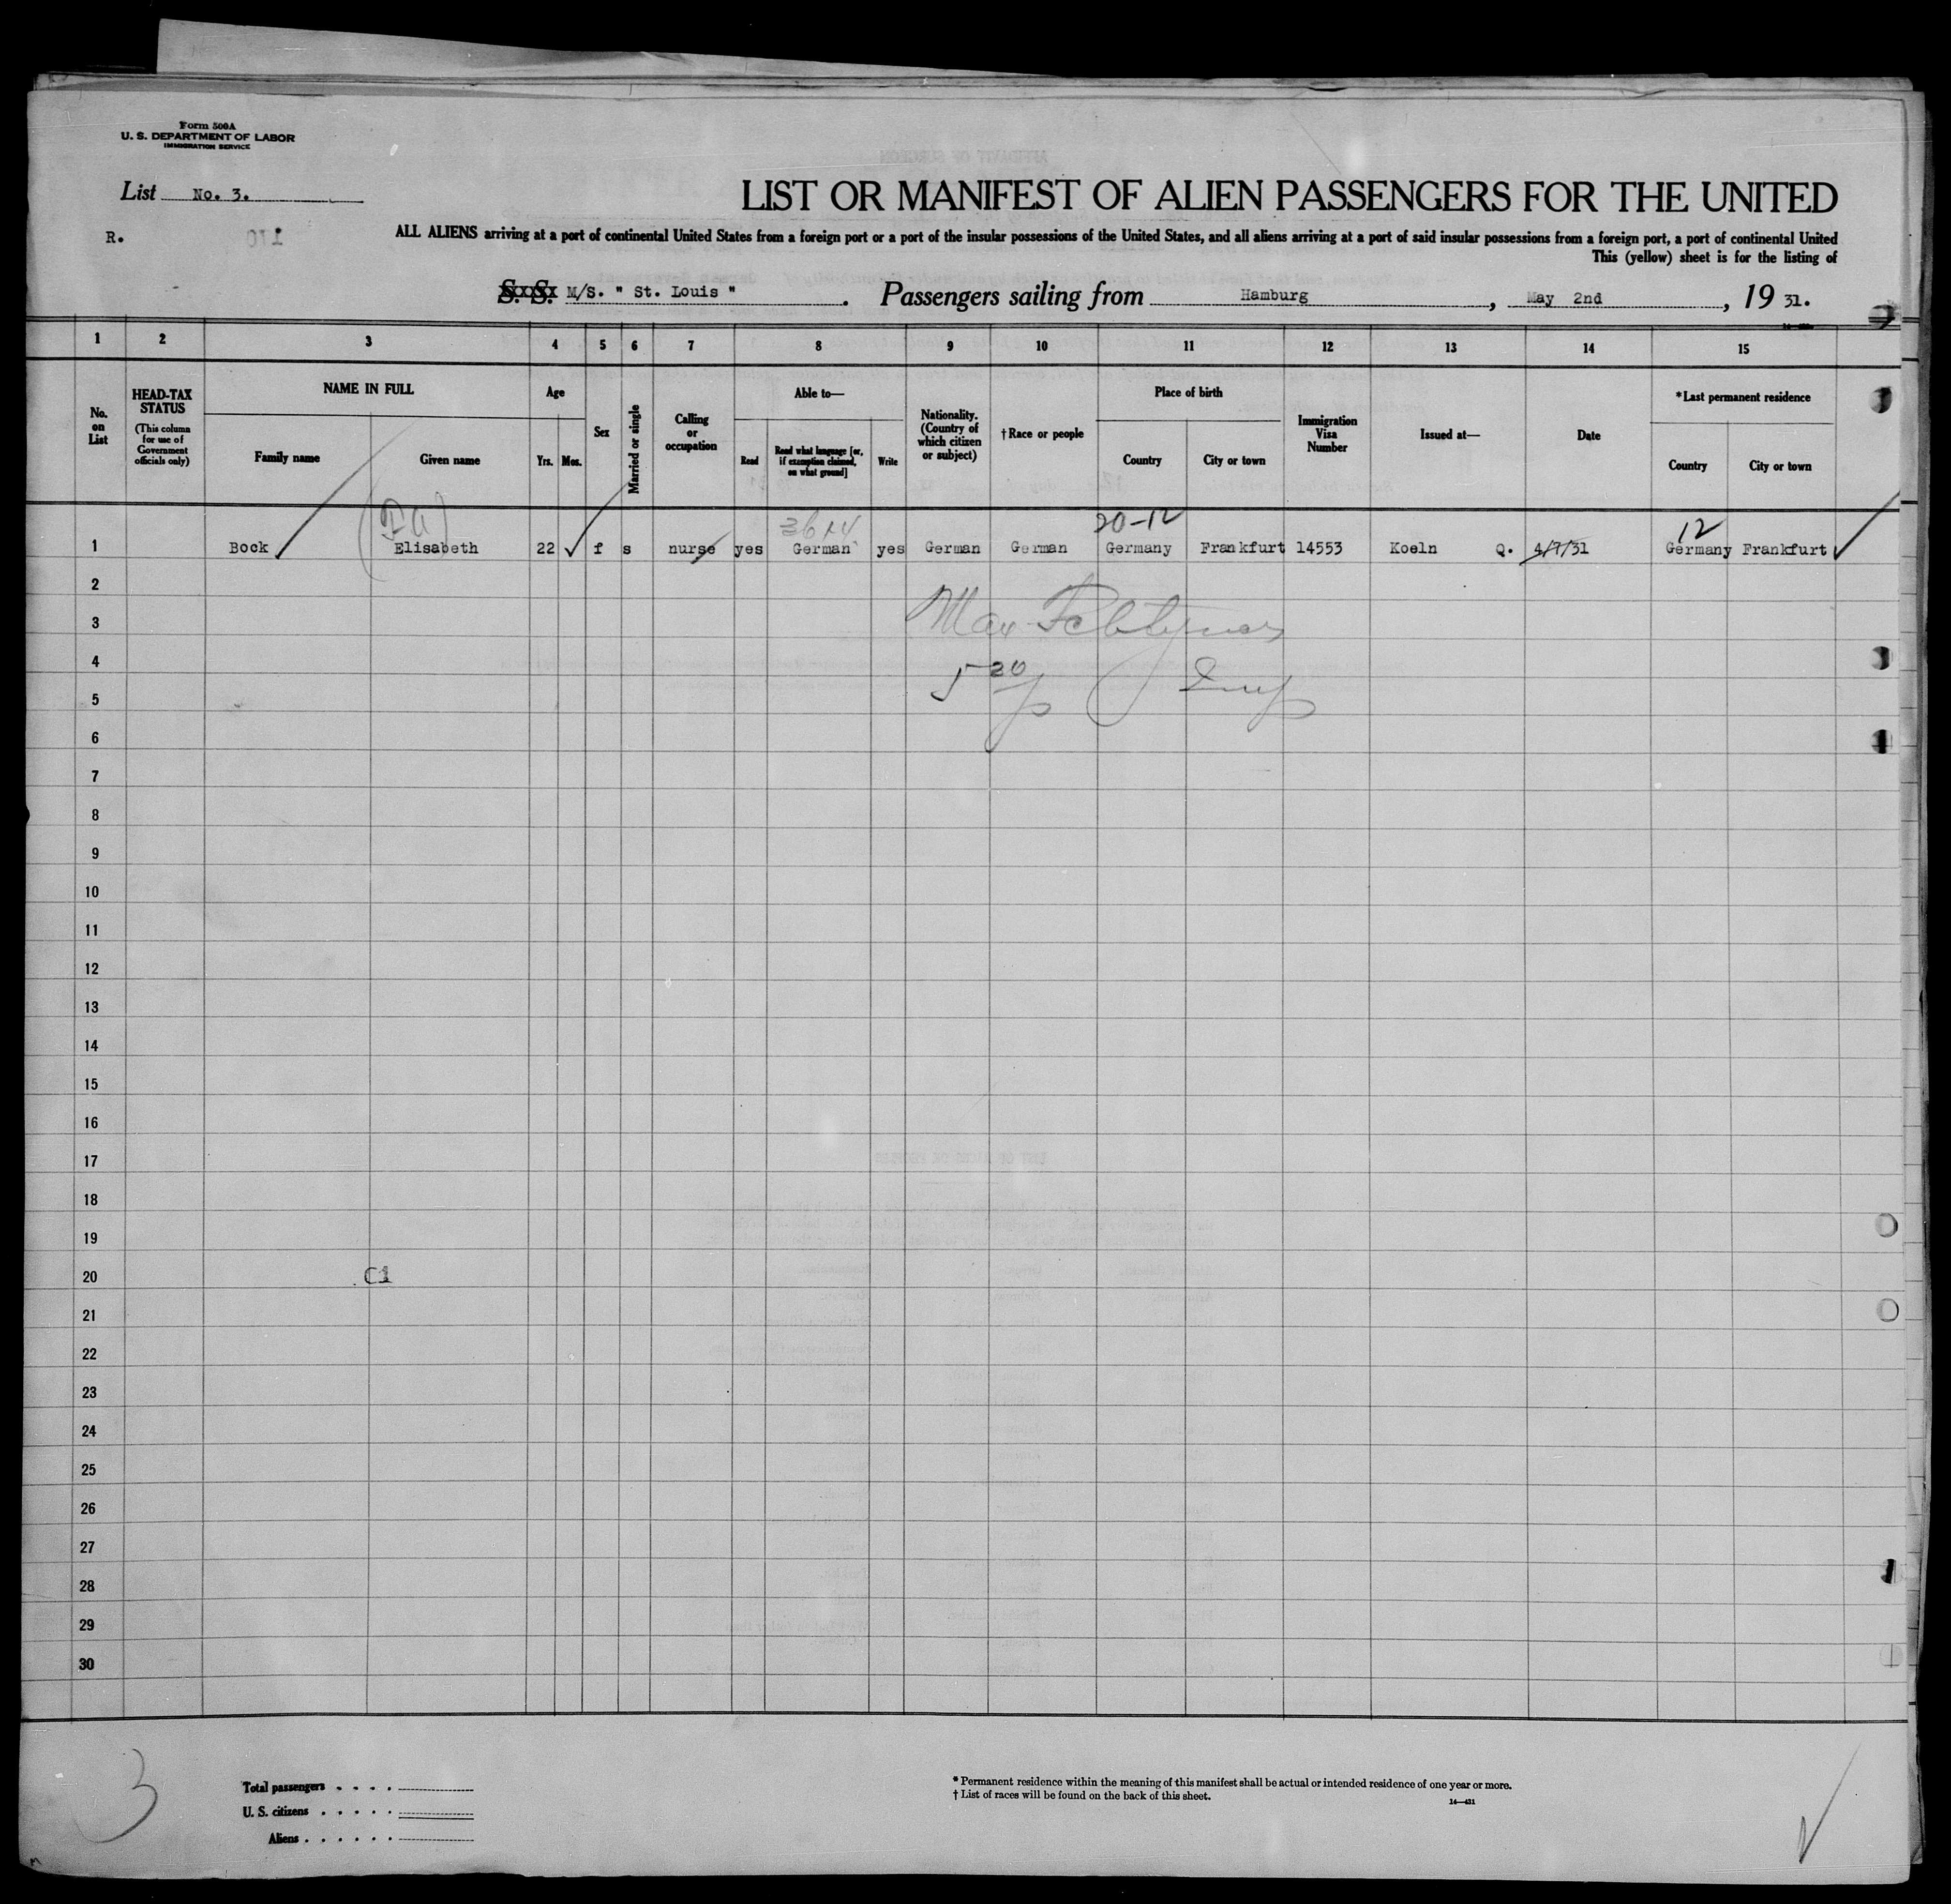 Form 500A
U. S. DEPARTMENT OF LABOR
IMMIGRATION SERVICE
List No. 3.
LIST OR MANIFEST OF ALIEN PASSENGERS FOR THE UNITED
R.
ALL ALIENS arriving at a port of continental United States from a foreign port or a port of the insular possessions of the United States, and all aliens arriving at a port of said insular possessions from a foreign port, a port of continental United
This (yellow) sheet is for the listing of
S. S. M/S. " St. Louis ". Passengers sailing from Hamburg, May 2nd, 19 31.
1 2 3 4 5 6 7 8 9 10 11 12 13 14 15
No. on List
HEAD-TAX STATUS (This column for use of Government officials only)
NAME IN FULL
Family name
Given name
Age
Yrs. Mos.
Sex
Married or single
Calling or occupation
Able to—
Read
Read what language [or, if exemption claimed, on what ground]
Write
Nationality. (Country of which citizen or subject)
†Race or people
Place of birth
Country
City or town
Immigration Visa Number
Issued at—
Date
*Last permanent residence
Country
City or town
20-12
12
1 Bock Elisabeth 22 f s nurse yes German yes German German Germany Frankfurt 14553 Koeln Q. 4/7/31 Germany Frankfurt
2
3 Max
4
5
6
7
8
9
10
11
12
13
14
15
16
17
18
19
20 C1
21
22
23
24
25
26
27
28
29
30
3
Total passengers . . . .
U. S. citizens . . . . .
Aliens . . . . . .
* Permanent residence within the meaning of this manifest shall be actual or intended residence of one year or more.
† List of races will be found on the back of this sheet.
14—431